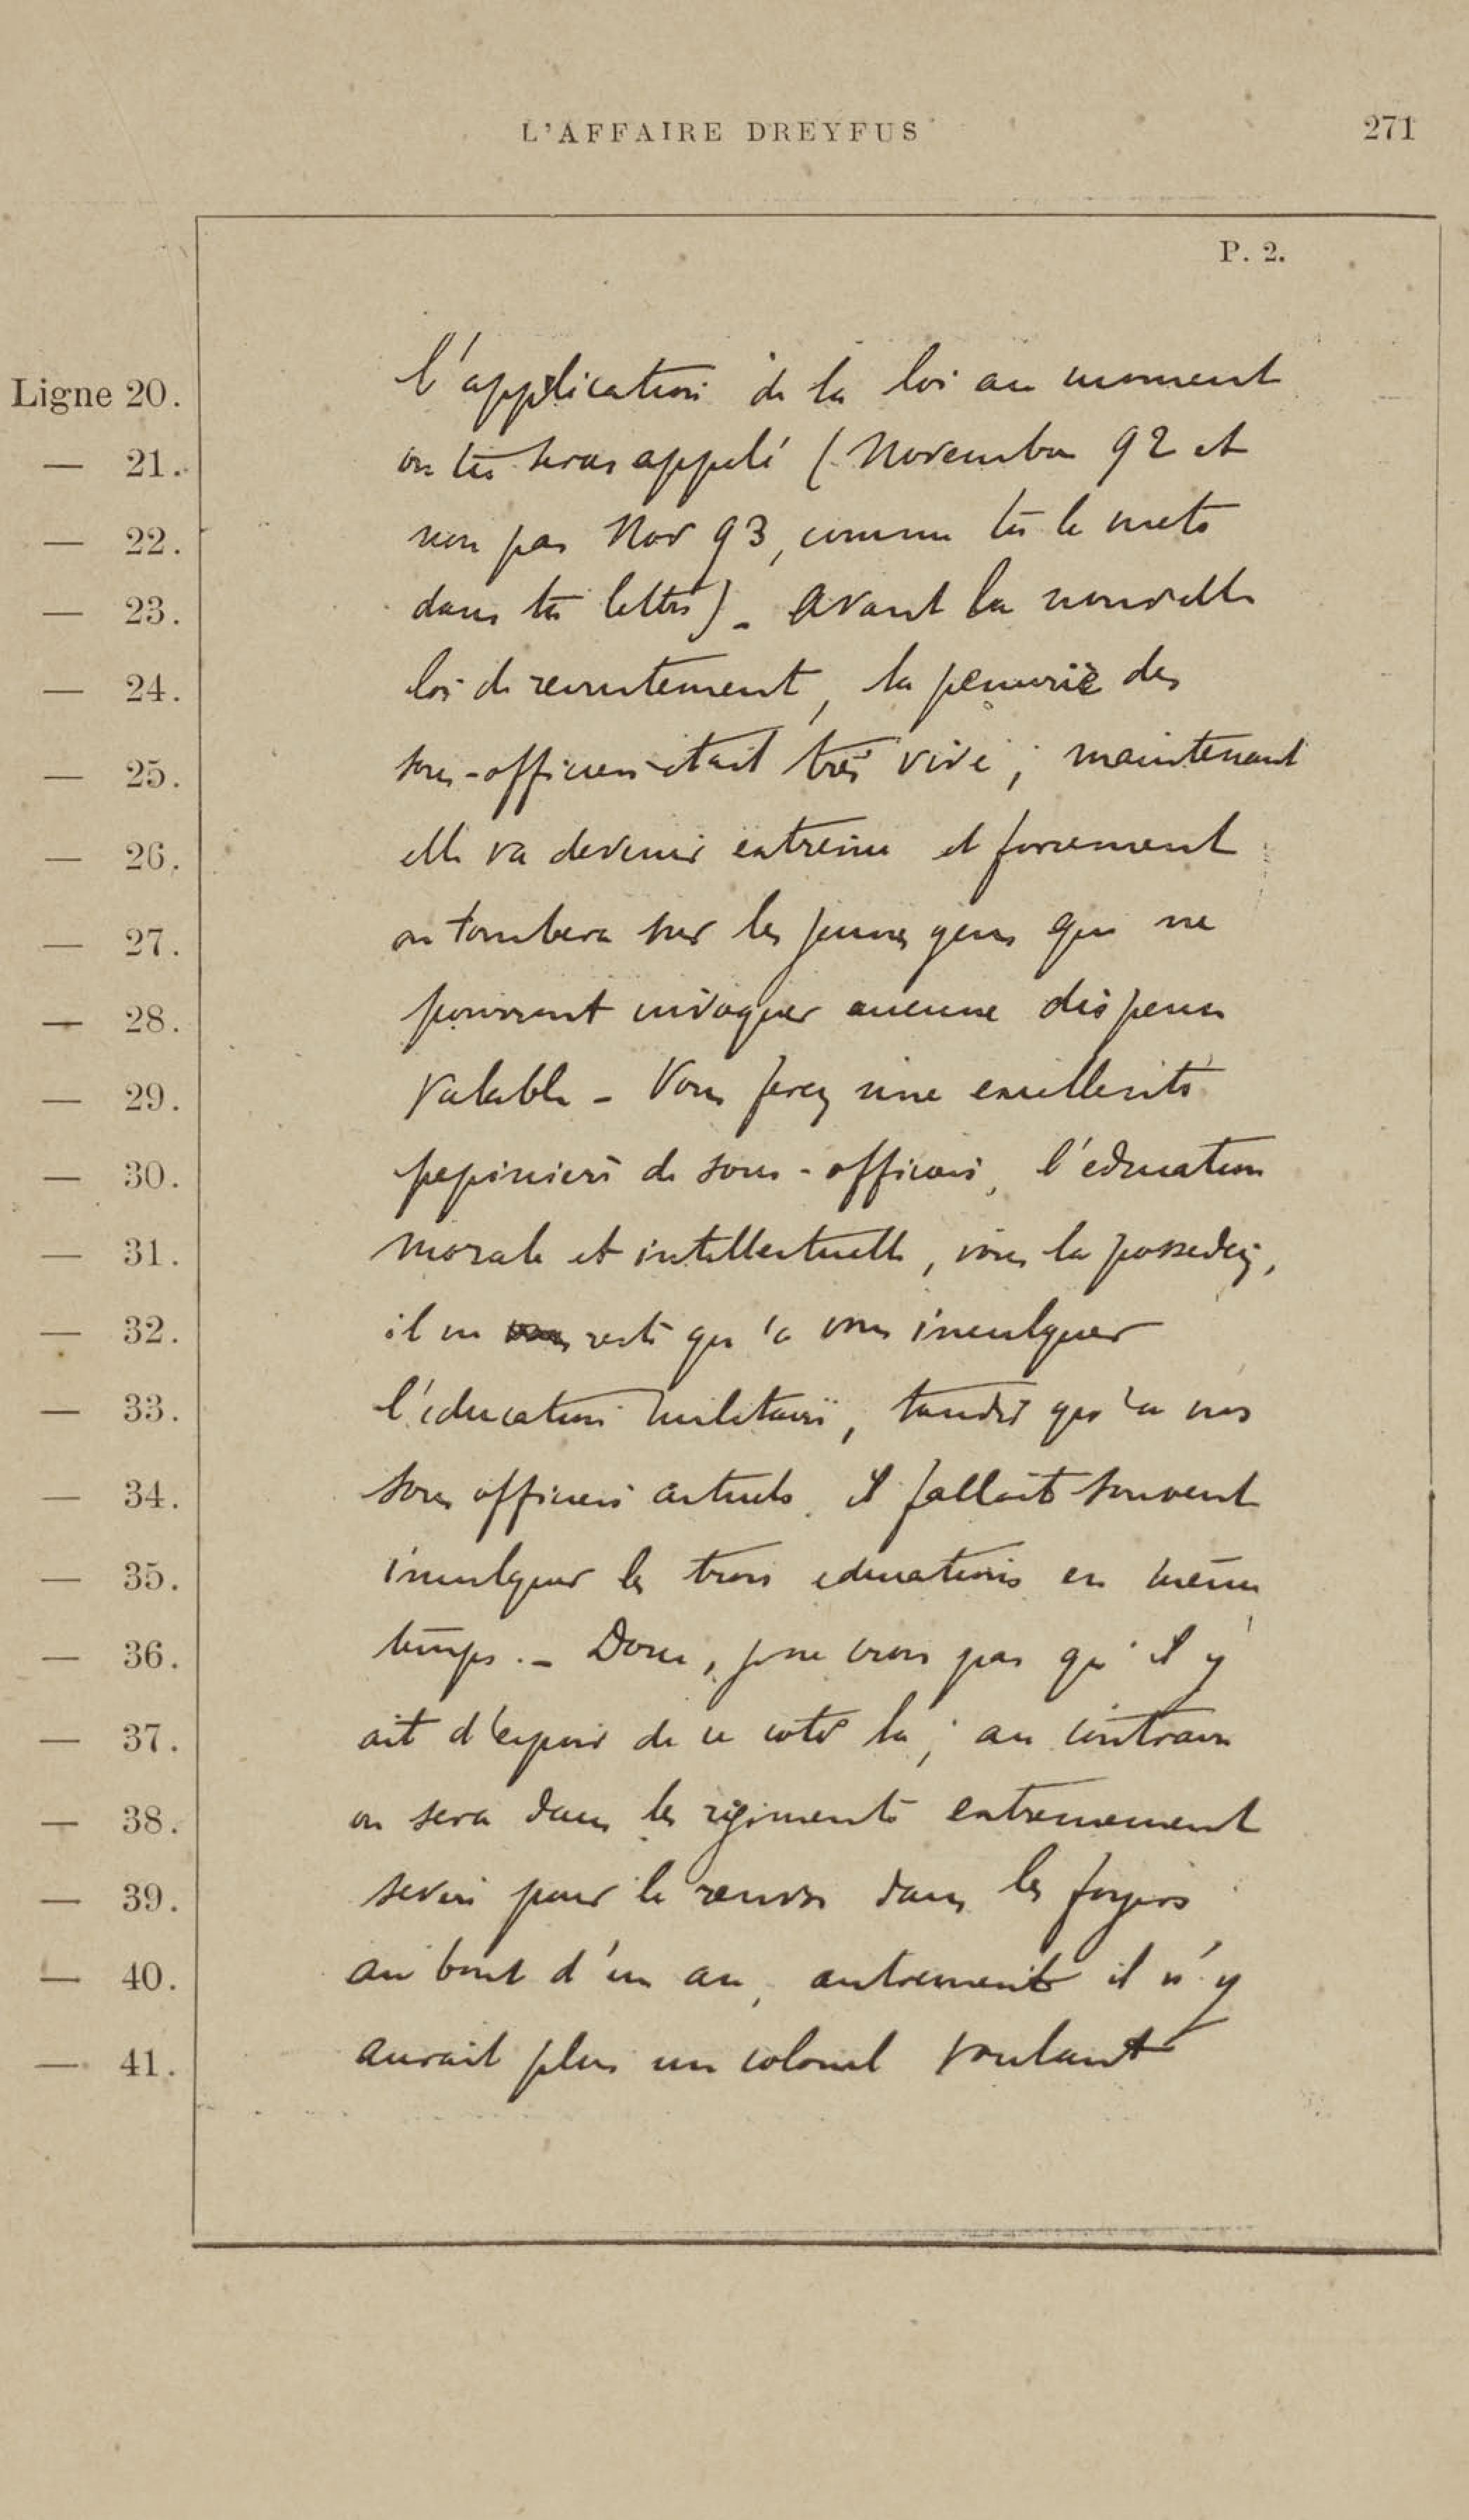 L'AFFAIRE DREYFUS
271
P. 2.
Ligne 20. l'application de la loi au moment
— 21. où tu seras appelé (Novembre 92 et
— 22. non pas Nov 93, comme tu le mets
— 23. dans ta lettre) _ Avant la nouvelle
— 24. loi de recrutement, la penurie des
— 25. sous-officiers était très vive ; maintenant
— 26. elle va devenir extrême et forcement
— 27. on tombera sur les jeunes gens qui ne
— 28. pourront invoquer aucune dispense
— 29. valable _ Vous ferez une excellente
— 30. pepiniere de sous-officiers, l'education
— 31. morale et intellectuelle, vous la possedez,
— 32. il ne reste qu'à vous inculquer
— 33. l'éducation militaire, tandis qu'à nos
— 34. sous officiers actuels, il fallait souvent
— 35. inculquer les trois educations en même
— 36. temps. _ Donc, je ne crois pas qu'il y
— 37. ait d'espoir de ce coté là ; au contraire
— 38. on sera dans les régiments extremement
— 39. severe pour le renvoi dans les foyers
— 40. au bout d'un an, autrement il n'y
— 41. aurait plus un colonel voulant